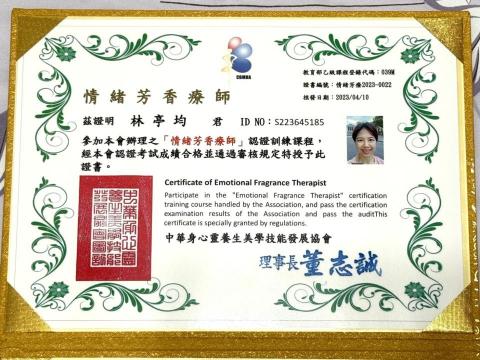 CGMHA
教育部乙級課程登錄代碼：039M
證書編號：情緒芳療2023-0022
核發日期：2023/04/10
情緒芳香療師
茲證明 林亭均 君 ID NO：S223645185
參加本會辦理之「情緒芳香療師」認證訓練課程，
經本會認證考試成績合格並通過審核規定特授予此
證書。
Certificate of Emotional Fragrance Therapist
Participate in the "Emotional Fragrance Therapist" certification
training course handled by the Association, and pass the certification
examination results of the Association and pass the auditThis
certificate is specially granted by regulations.
中華身心靈養生美學技能發展協會
理事長 董志誠